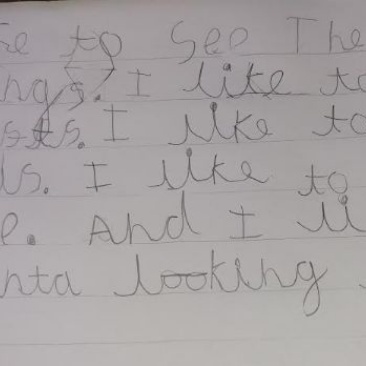 ke to see The
ngs. I like to
sts. I like to
ls. I like to
e. And I li
nta looking.